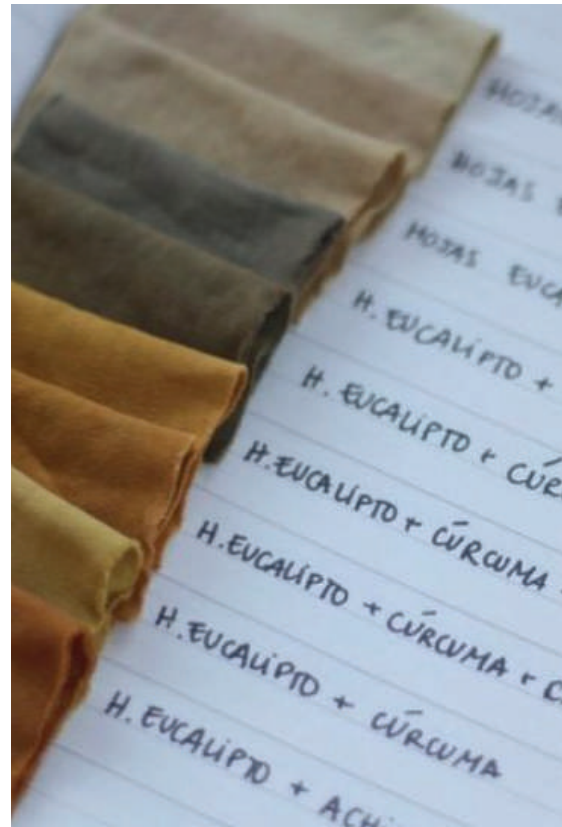 HOJAS
HOJAS
HOJAS EUCA
H. EUCALIPTO +
H. EUCALIPTO + CÚR
H. EUCALIPTO + CÚRCUMA +
H. EUCALIPTO + CÚRCUMA + C
H. EUCALIPTO + CÚRCUMA
H. EUCALIPTO + ACHI